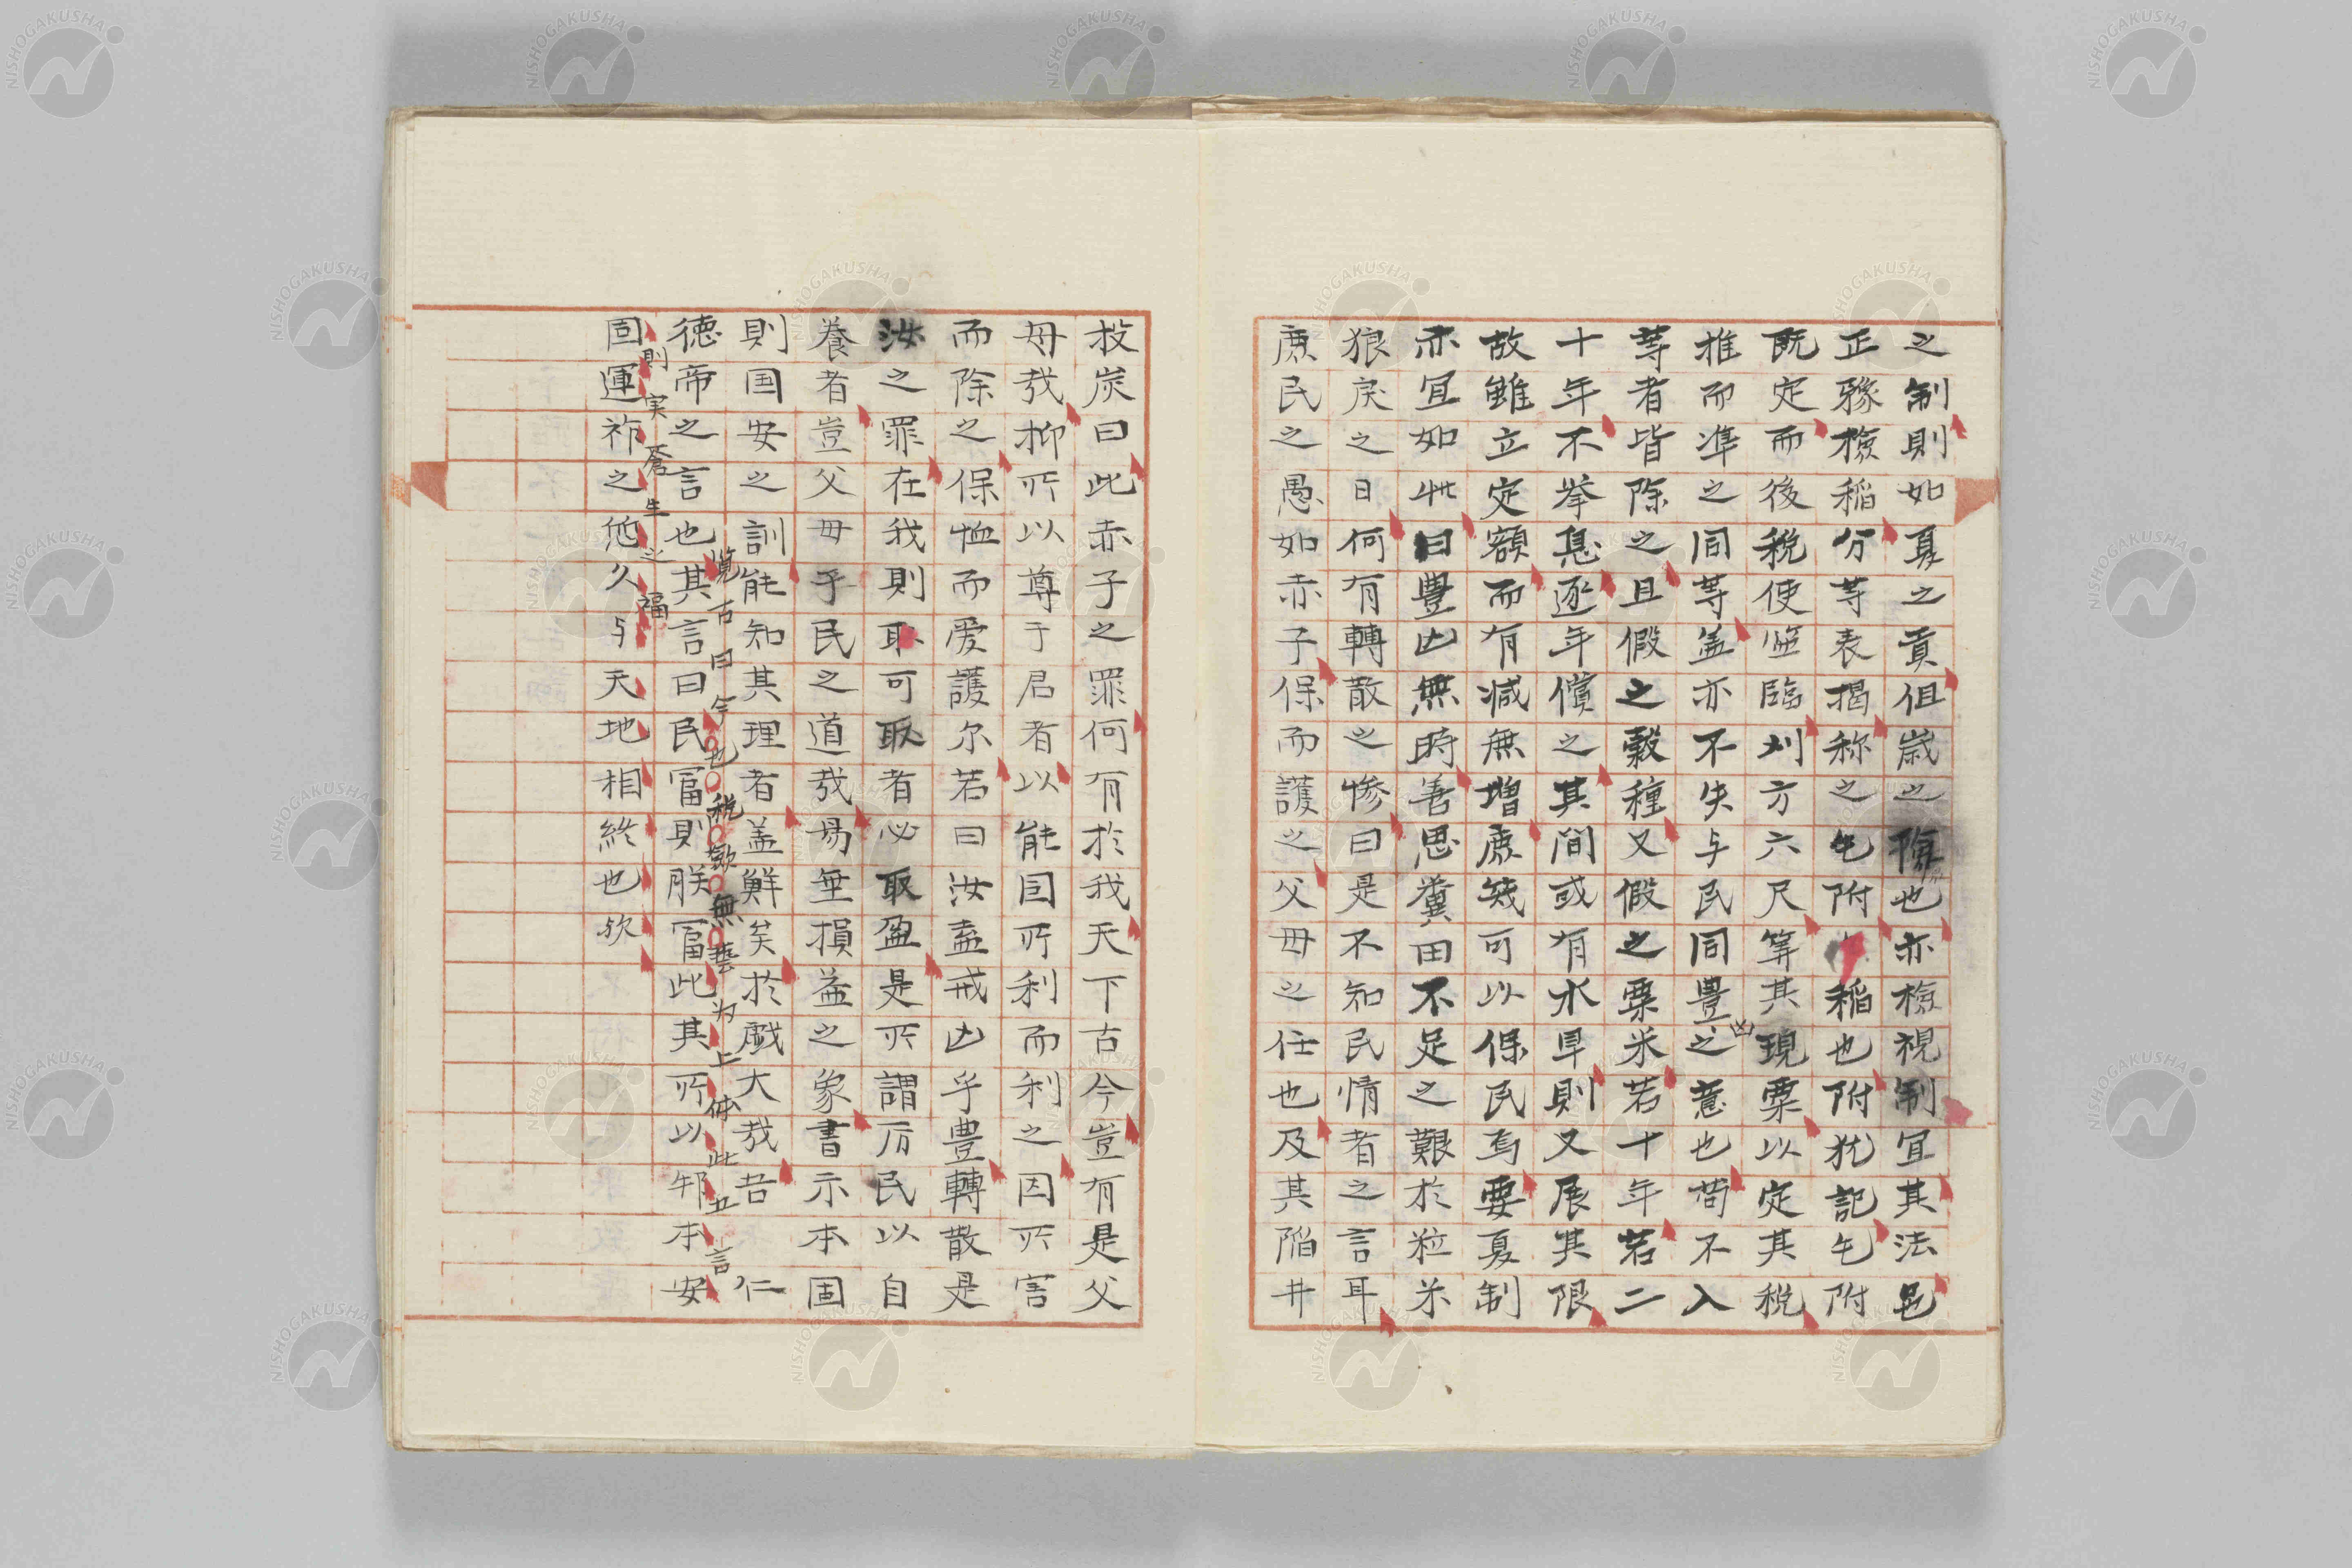 之制則如夏之貢但歳之險也亦檢視制宜其法邑
正豫檢稲分等表揭称之乞附稲也附犹記乞附
既定而後税使監臨刈方六尺筭其現粟以定其税
推而準之同等盖亦不失与民同豊凶之意也苟不入
等者皆除之且假之穀種又假之粟米若十年若二
十年不挙息逐年償之其間或有水旱則又展其限
故雖立定額而有減無増庶幾可以保民焉要夏制
亦宜如此曰豊凶無時善思糞田不足之艱於粒米
狼戻之日何有轉散之惨曰是不知民情者之言耳
庶民之愚如赤子保而護之父母之任也及其陥井
投炭曰此赤子之罪何有於我天下古今豈有是父
母哉抑所以尊于君者以能因所利而利之因所害
而除之保恤而愛護尔若曰汝盍戒凶乎豊轉散是
汝之罪在我則取可取者必取盈是所謂厉民以自
養者豈父母乎民之道哉易垂損益之象書示本固
則国安之訓能知其理者盖鮮矣於戯大哉吾仁
徳帝之言也其言曰民冨則朕冨此其所以邦本安
覧古曰今也税歛無藝为上体此立言
則実蒼生之福
固運祚之悠久与天地相終也欤
NISHOGAKUSHA